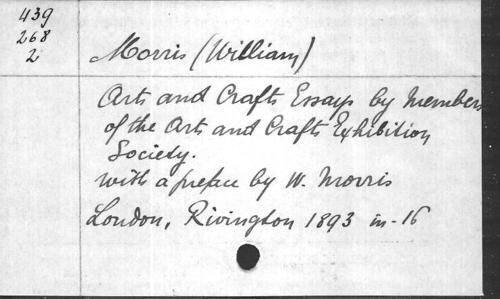 439
268
2
Morris (William)
Arts and Crafts Essays by Members
of the Arts and Crafts Exhibition
Society.
with a preface by W. Morris
London, Rivington 1893 in-16